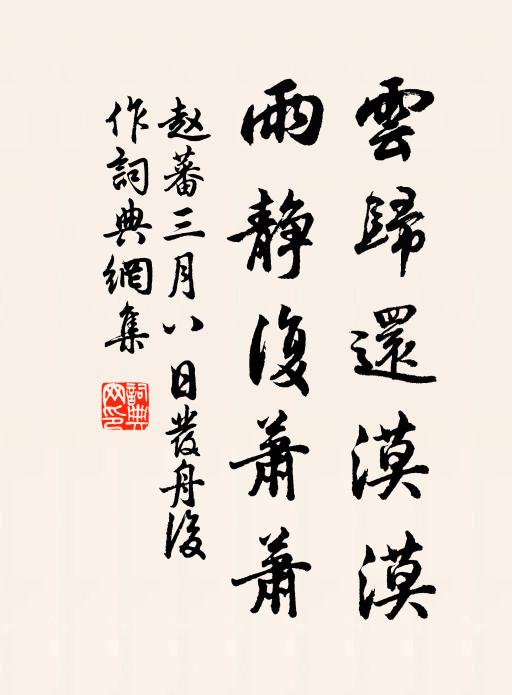 雲歸還漠漠
雨静復蕭蕭
赵蕃三月八日發舟後
作詞典網集
詞典
网印